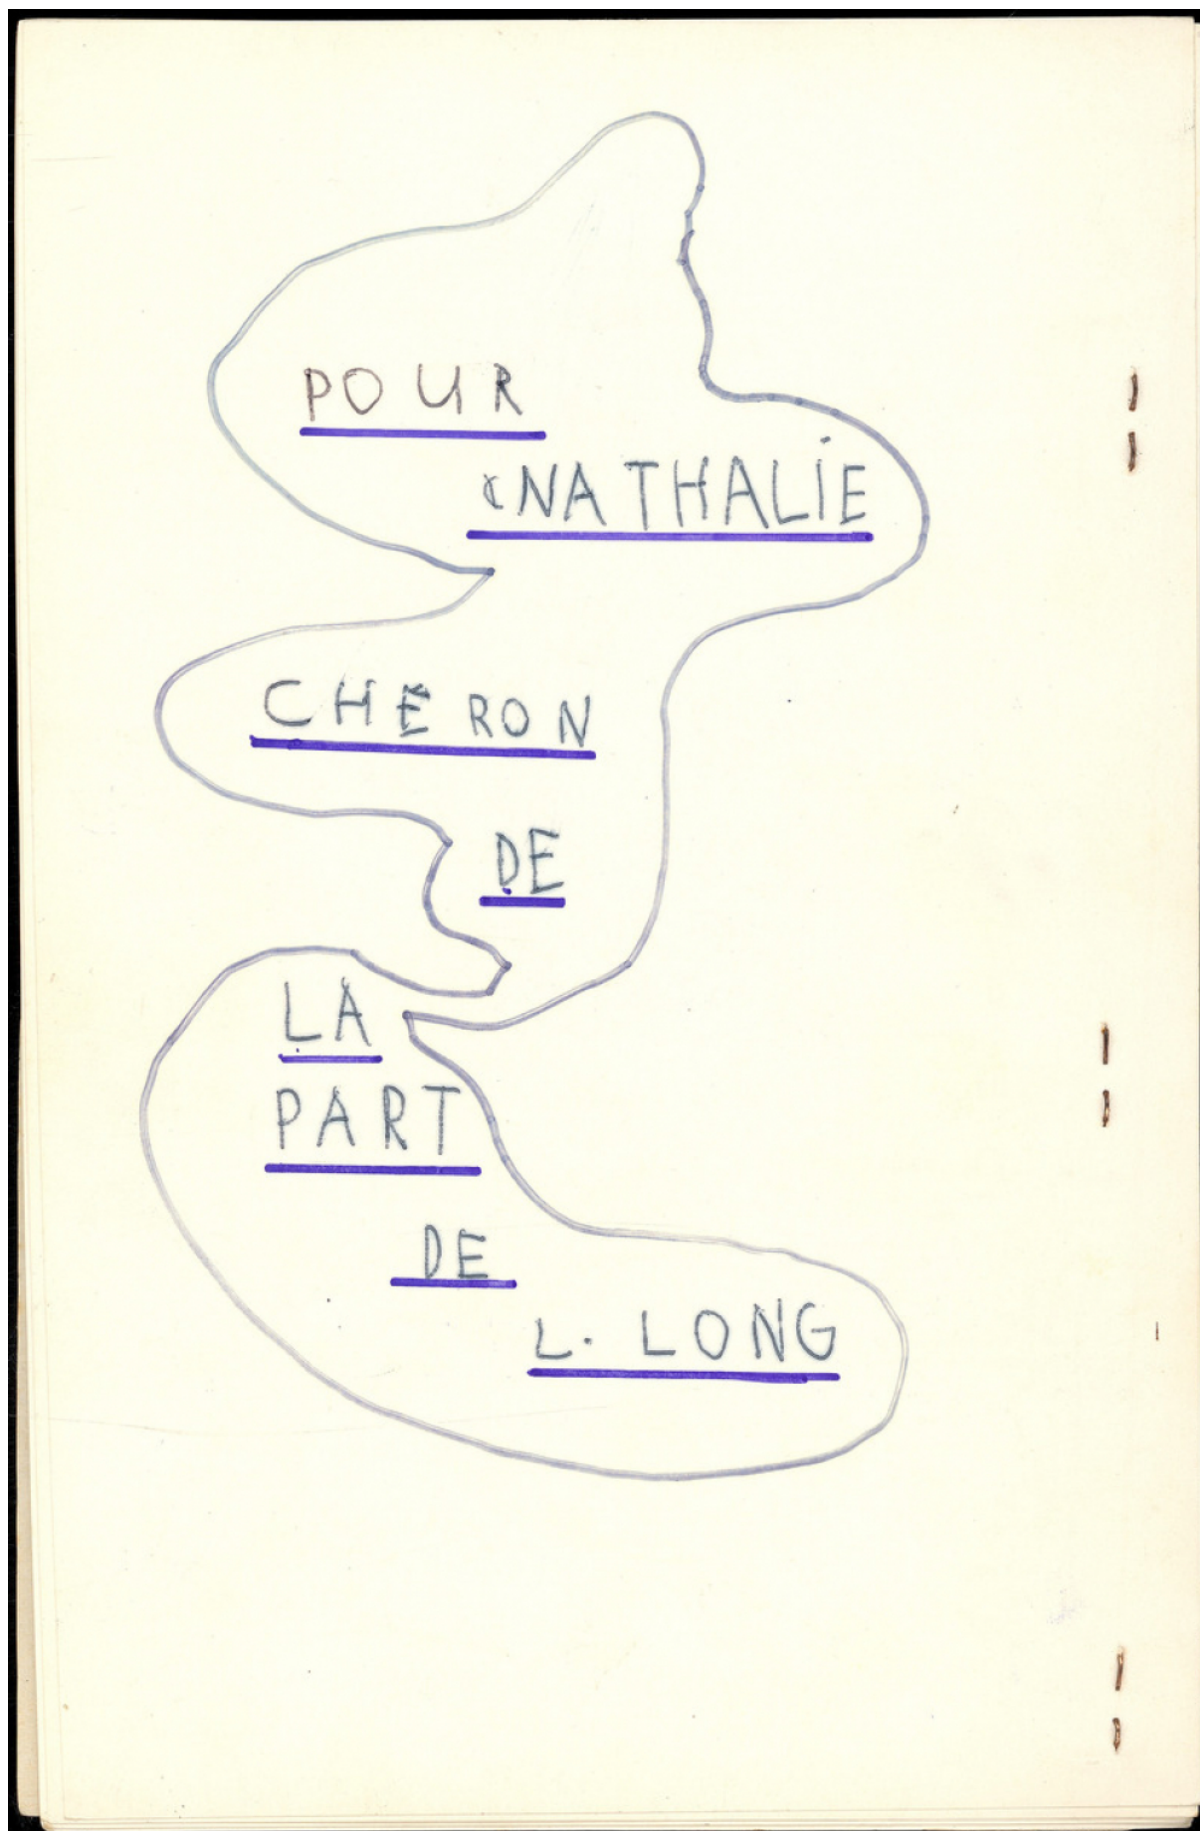 POUR
NATHALIE
CHÉRON
DE
LA
PART
DE
L. LONG